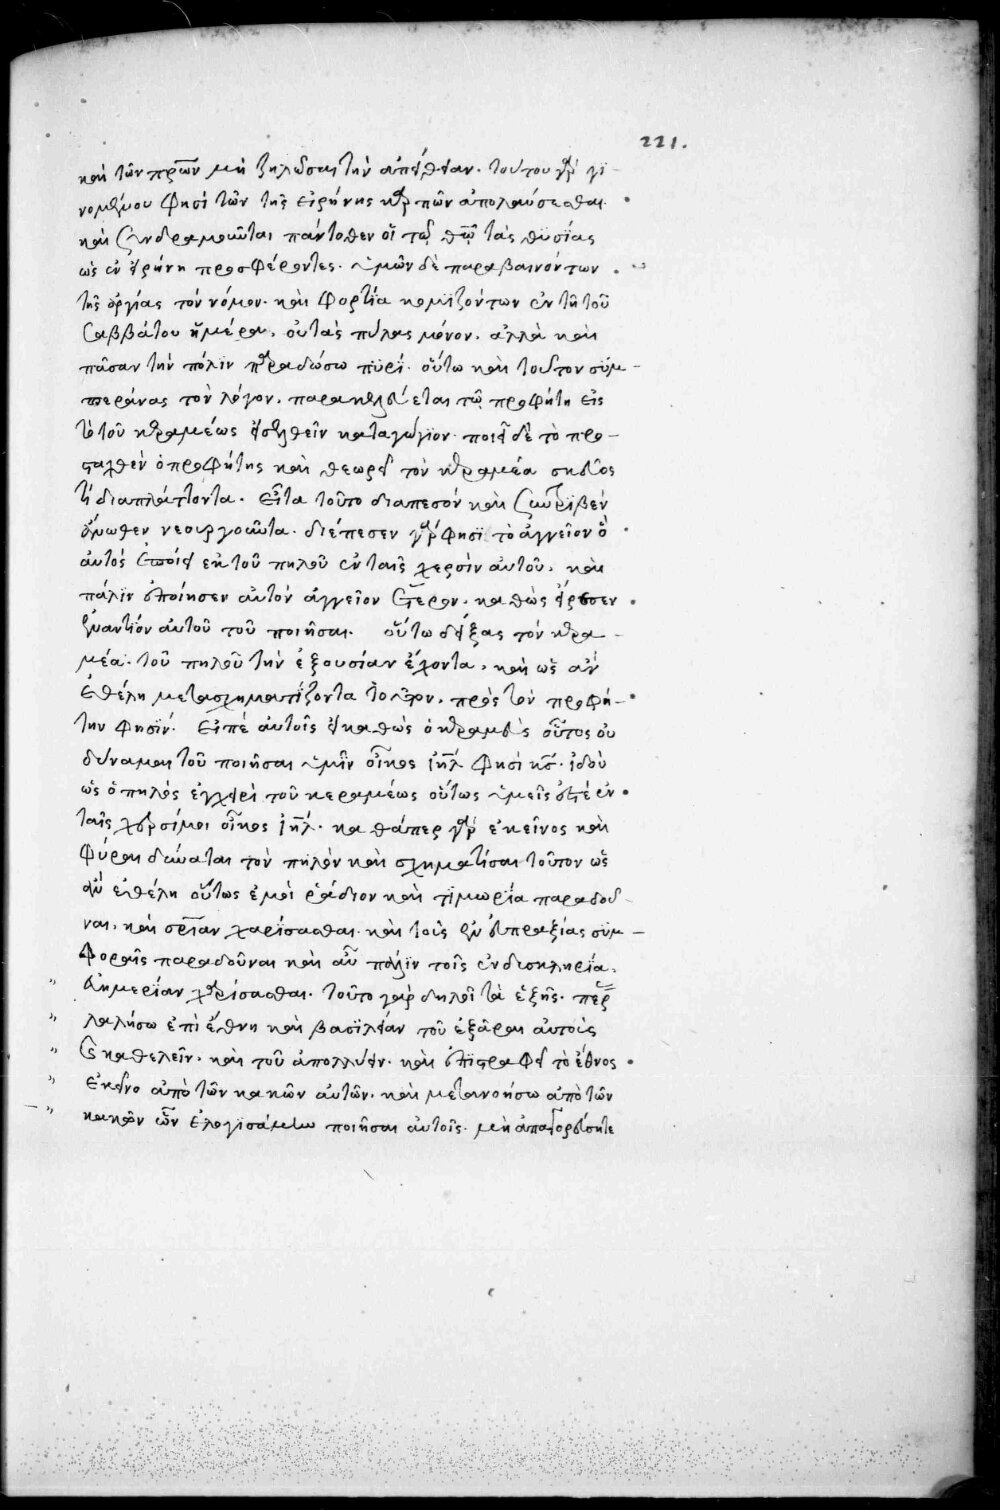 221.
καὶ τῶν πρων μὴ ζηλῶσαι τὴν ἀπείθειαν. τούτου γὰρ γι-
νομένου φησὶ τῶν τῆς εἰρήνης καρπῶν ἀπολαύσεσθαι.
καὶ συνδραμοῦνται πάντοθεν οἱ τῷ θῷ τὰς θυσίας
ὡς ἐν εἰρήνη προσφέροντες. ὑμῶν δὲ παραβαινόντων
τῆς ἀργίας τὸν νόμον. καὶ φορτία κομϊζόντων ἐν τῆ τοῦ
σαββάτου ἡμέρα. οὐ τὰς πύλας μόνον. ἀλλὰ καὶ
πᾶσαν τὴν πόλϊν παραδώσω πϋρί. οὕτω καὶ τοῦτον σϋμ-
περάνας τὸν λόγον. παρακελεύεται τῷ προφήτη εἰς
τὸ τοῦ κεραμέως εἰσελθεῖν καταγώγϊον. ποιεῖ δὲ τὸ προ-
σταχθὲν ὁ προφήτης καὶ θεωρεῖ τὸν κεραμέα σκεῦος
τὶ διαπλάττοντα. εἶτα τοῦτο διαπεσὸν καὶ συντρϊβὲν
ἄνωθεν νεουργοῦντα. διέπεσεν γὰρ φησϊ τὸ ἀγγεῖον ὃ
αὐτὸς ἐποίει ἐκ τοῦ πηλοῦ ἐν ταῖς χερσὶν αὐτοῦ. καὶ
πάλϊν ἐποίησεν αὐτὸν ἀγγεῖον ἕτερον. καθὼς ἤρεσεν
ἐναντίον αὐτοῦ τοῦ ποιῆσαι. οὕτω δείξας τὸν κερα-
μέα. τοῦ πηλοῦ τὴν ἐξουσίαν ἔχοντα. καὶ ὡς ἂν
ἐθέλη μετασχηματίζοντα πρὸς τὸν προφή-
την φησϊν. εἰπὲ αὐτοῖς εἰ καθὼς ὁ κεραμεὺς οὗτος οὐ
δύναμαι τοῦ ποιῆσαι ὑμῖν οἶκος ιηλ φησὶ κς. ἰδοὺ
ὡς ὁ πηλὸς ἐγχειρὶ τοῦ κεραμέως οὕτως ὑμεῖς ἐστὲ ἐν
ταῖς χερσί μοι οἶκος ιηλ. καθάπερ γὰρ ἐκεῖνος καὶ
φύραι δύναται τὸν πηλὸν καὶ σχηματίσαι τοῦτον ὡς
ἂν ἐθέλη οὕτως ἐμοὶ ῥάδιον καὶ τϊμωρία παραδοῦ-
ναι. καὶ σριαν χαρίσασθαι. καὶ τοὺς ἐν εὐπραξίας σϋμ-
φοραῖς παραδοῦναι καὶ αὖ πάλϊν τοῖς ἐν δυσκληρία.
εὐημερίαν χαρίσασθαι. τοῦτο γὰρ δηλοῖ τὰ ἑξῆς. πέρας
λαλήσω ἐπὶ ἔθνη καὶ βασϊλείαν τοῦ ἐξᾶραι αὐτοὺς
καθελεῖν. καὶ τοῦ ἀπολλύειν. καὶ ἐπϊστραφῆ τὸ ἔθνος
ἐκεῖνο ἀπὸ τῶν κακῶν αὐτῶν. καὶ μετανοήσω ἀπὸ τῶν
κακῶν ὧν ἐλογισάμην ποιῆσαι αὐτοῖς. μὴ